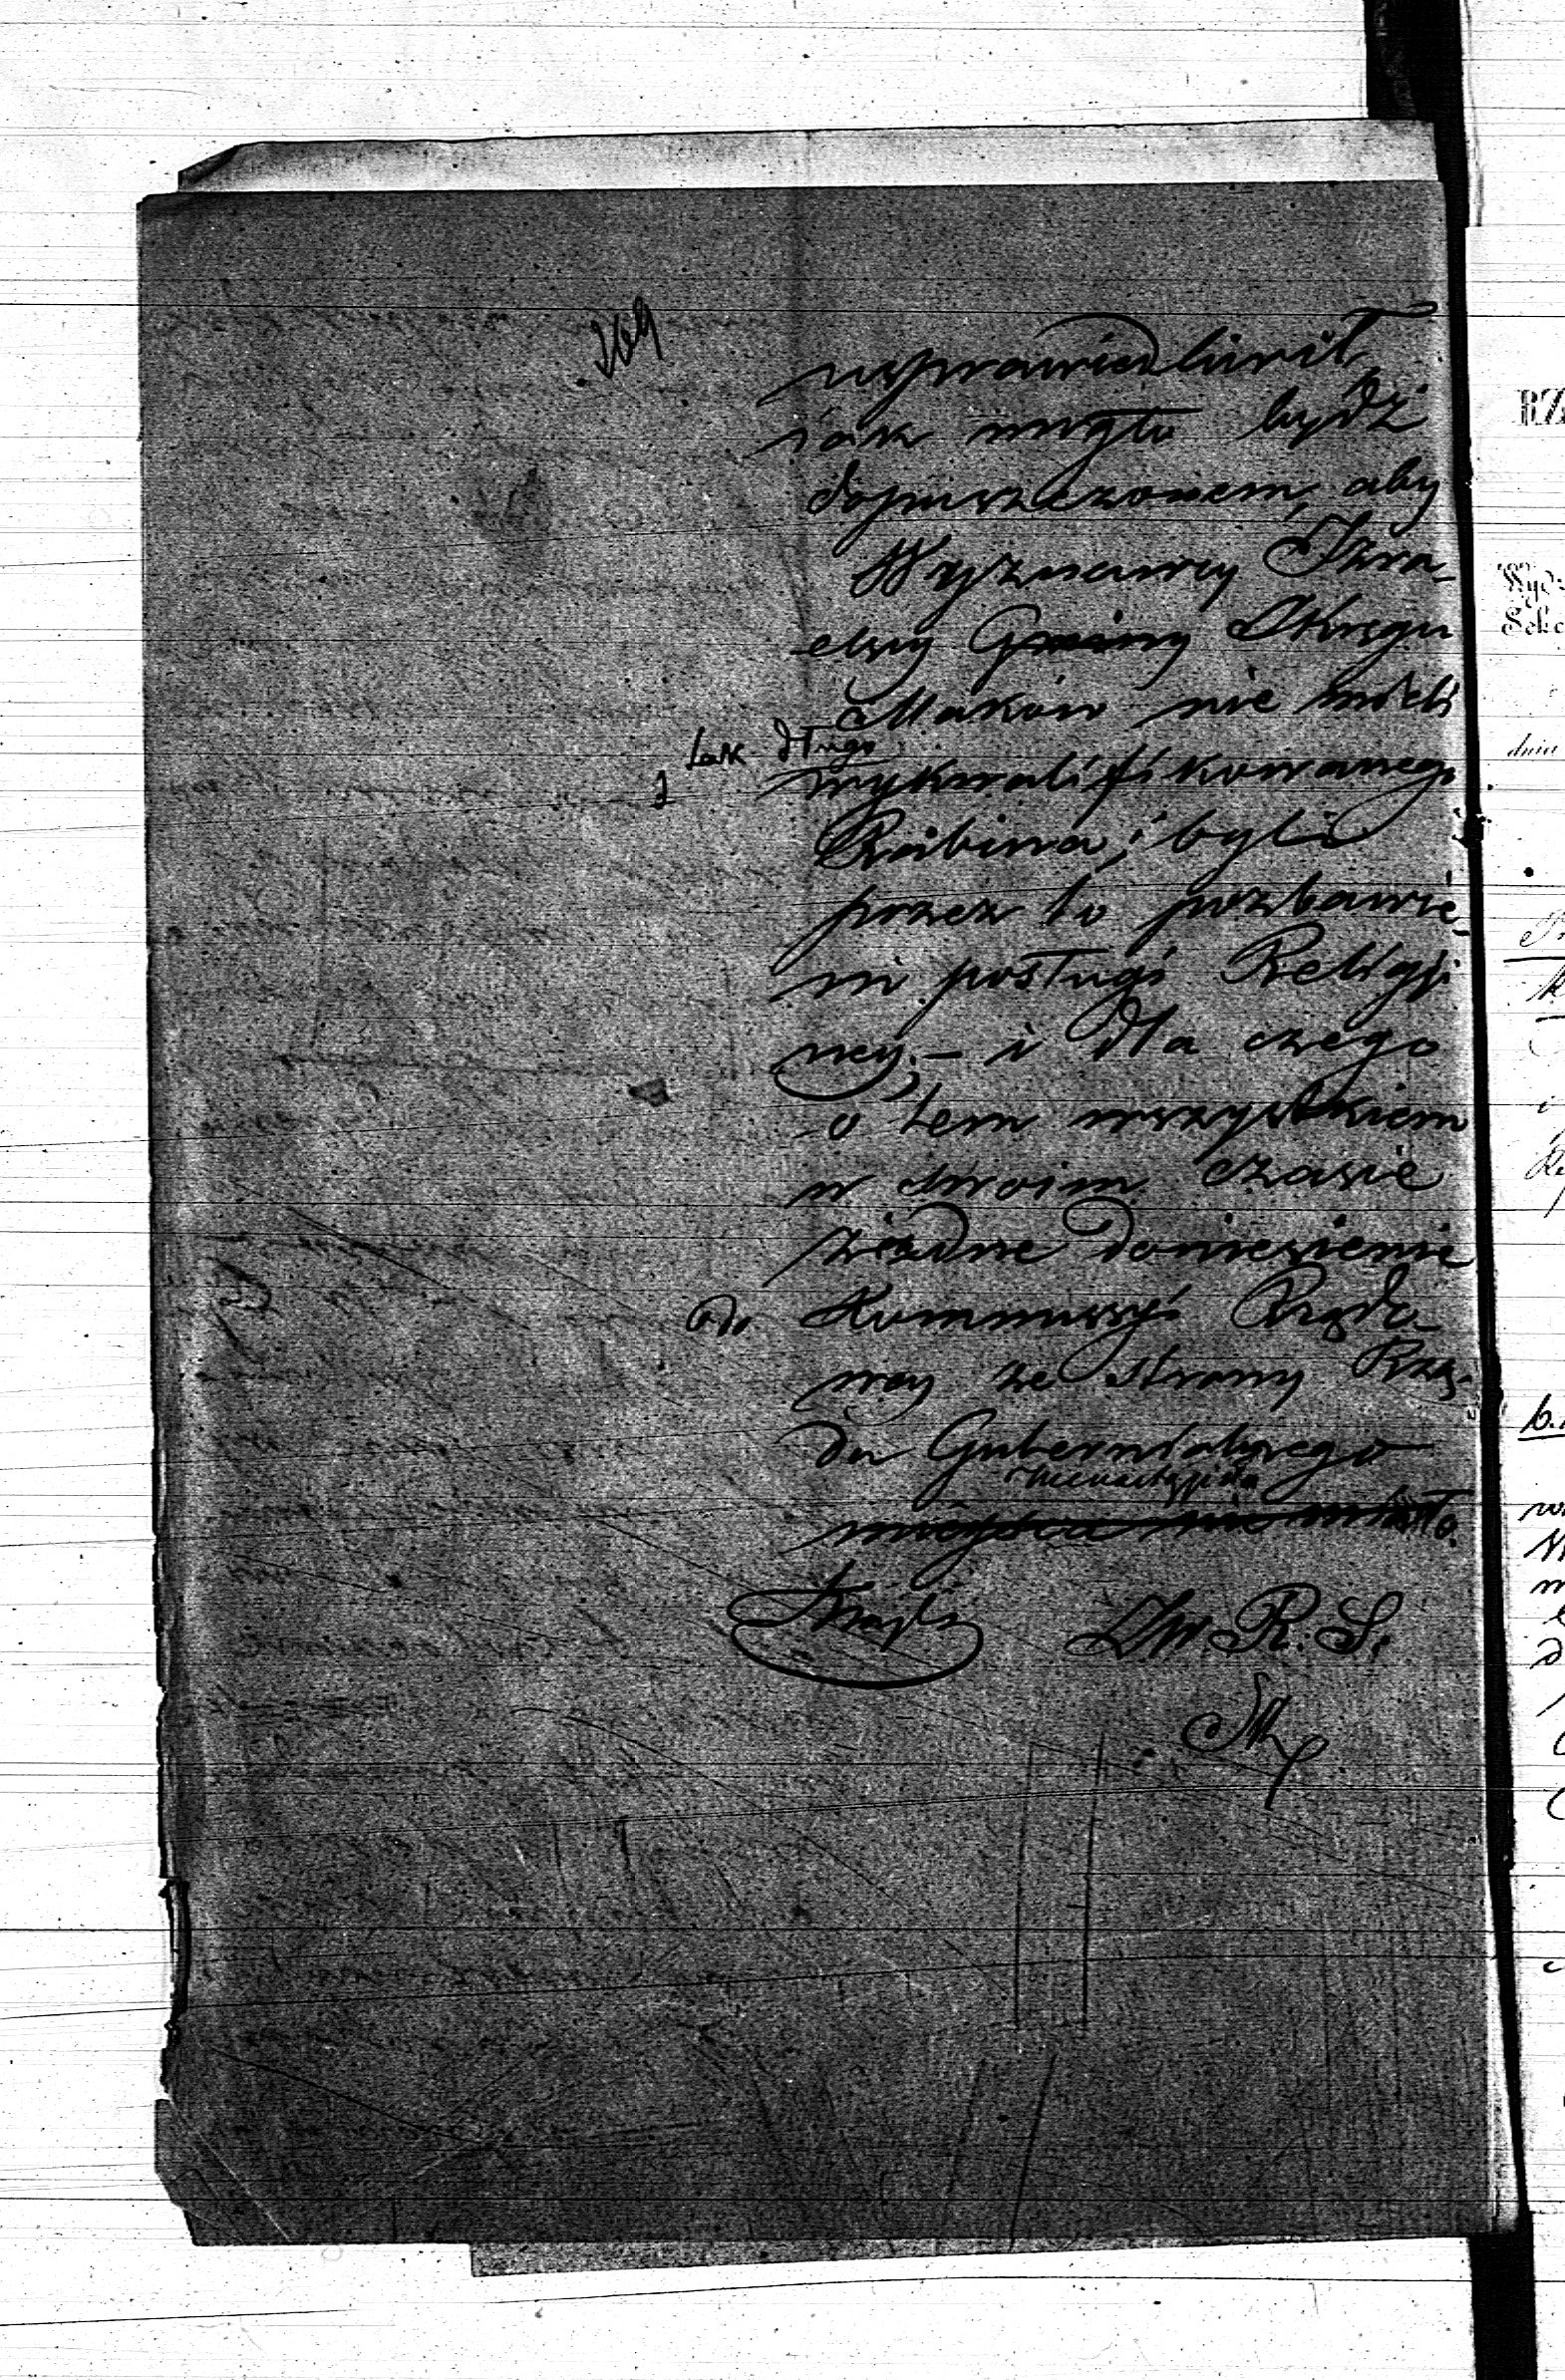 169
usprawiedliwił
jak mogło bydź
dopuszczonem, aby
Wyznawcy Izra-
elscy Gminy Okręgu
Maków nie mieli
tak długo
wykwalifikowanego
Rabina, i byli
przez to pozbawie-
ni posługi Religij-
ney; – i dla czego
o tem wszystkiem
w swoim czasie
żadne doniesienie
do Kommissyi Rządo-
wey ze strony Rzą-
du Gubernialnego
nienastąpiło
mieysca nie miało.
D. R. S.
RZ
Wyd
Sekc
dnia